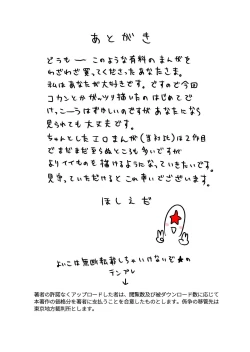 あとがき
どうもー このような有料のまんがを
わざわざ買ってくださったあなたさま。
私はあなたが大好きです。ですので今回
コカンとかガッツリ描いたの はじめてで
けっこーうはずかしいのですが あなたになら
見られても大丈夫です。
ちゃんとしたエロまんが(まるまる)は2作目
でまだまだ至らぬところも多いですが
よりイイものを描けるようになっていきたいです。
見守っていただけるとこの幸いでございます。
ほしえだ
よいこは無断転載しちゃいけないぞ★の
テンプレ
↓
著者の許諾なくアップロードした者は、閲覧数及び被ダウンロード数に応じて
本著作の価格分を著者に支払うことを合意したものとします。係争の移管先は
東京地方裁判所とします。